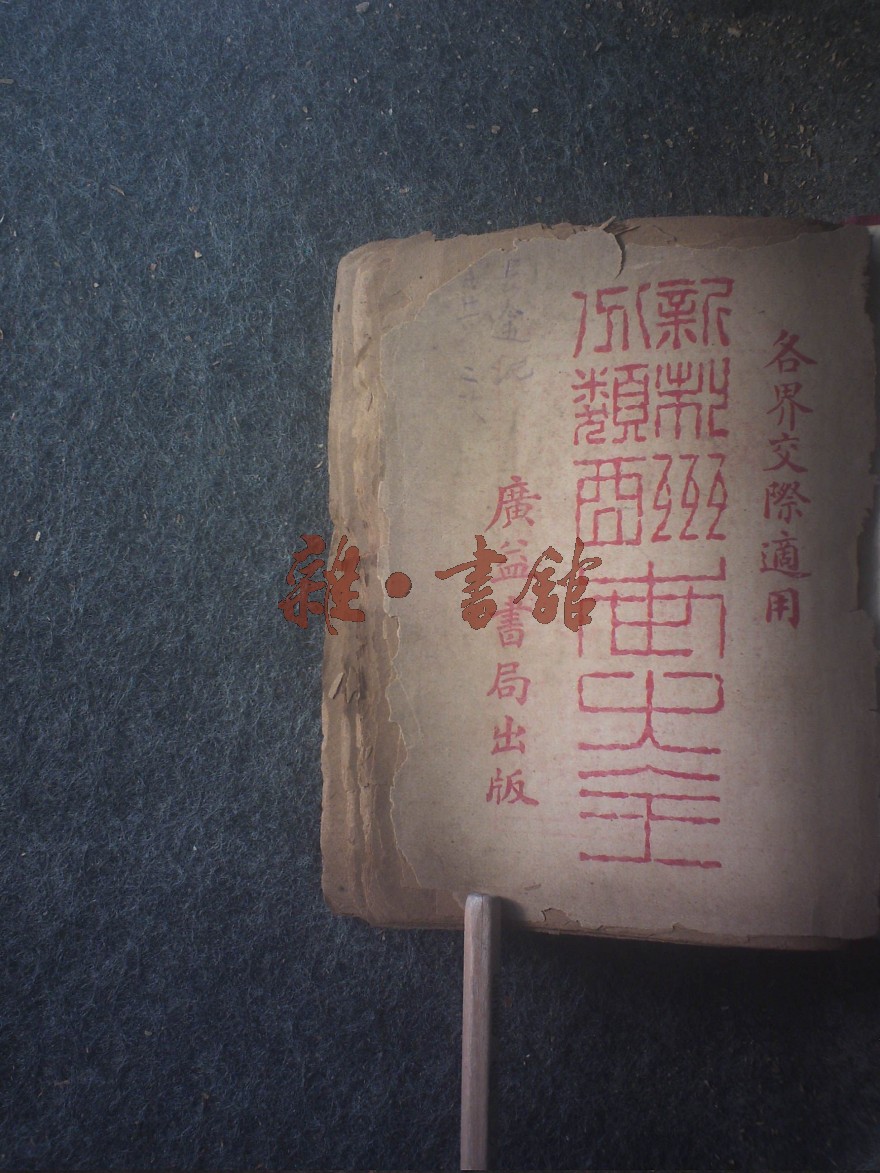 各界交際適用
新制分類酬世大全
廣益書局出版
雜·書館